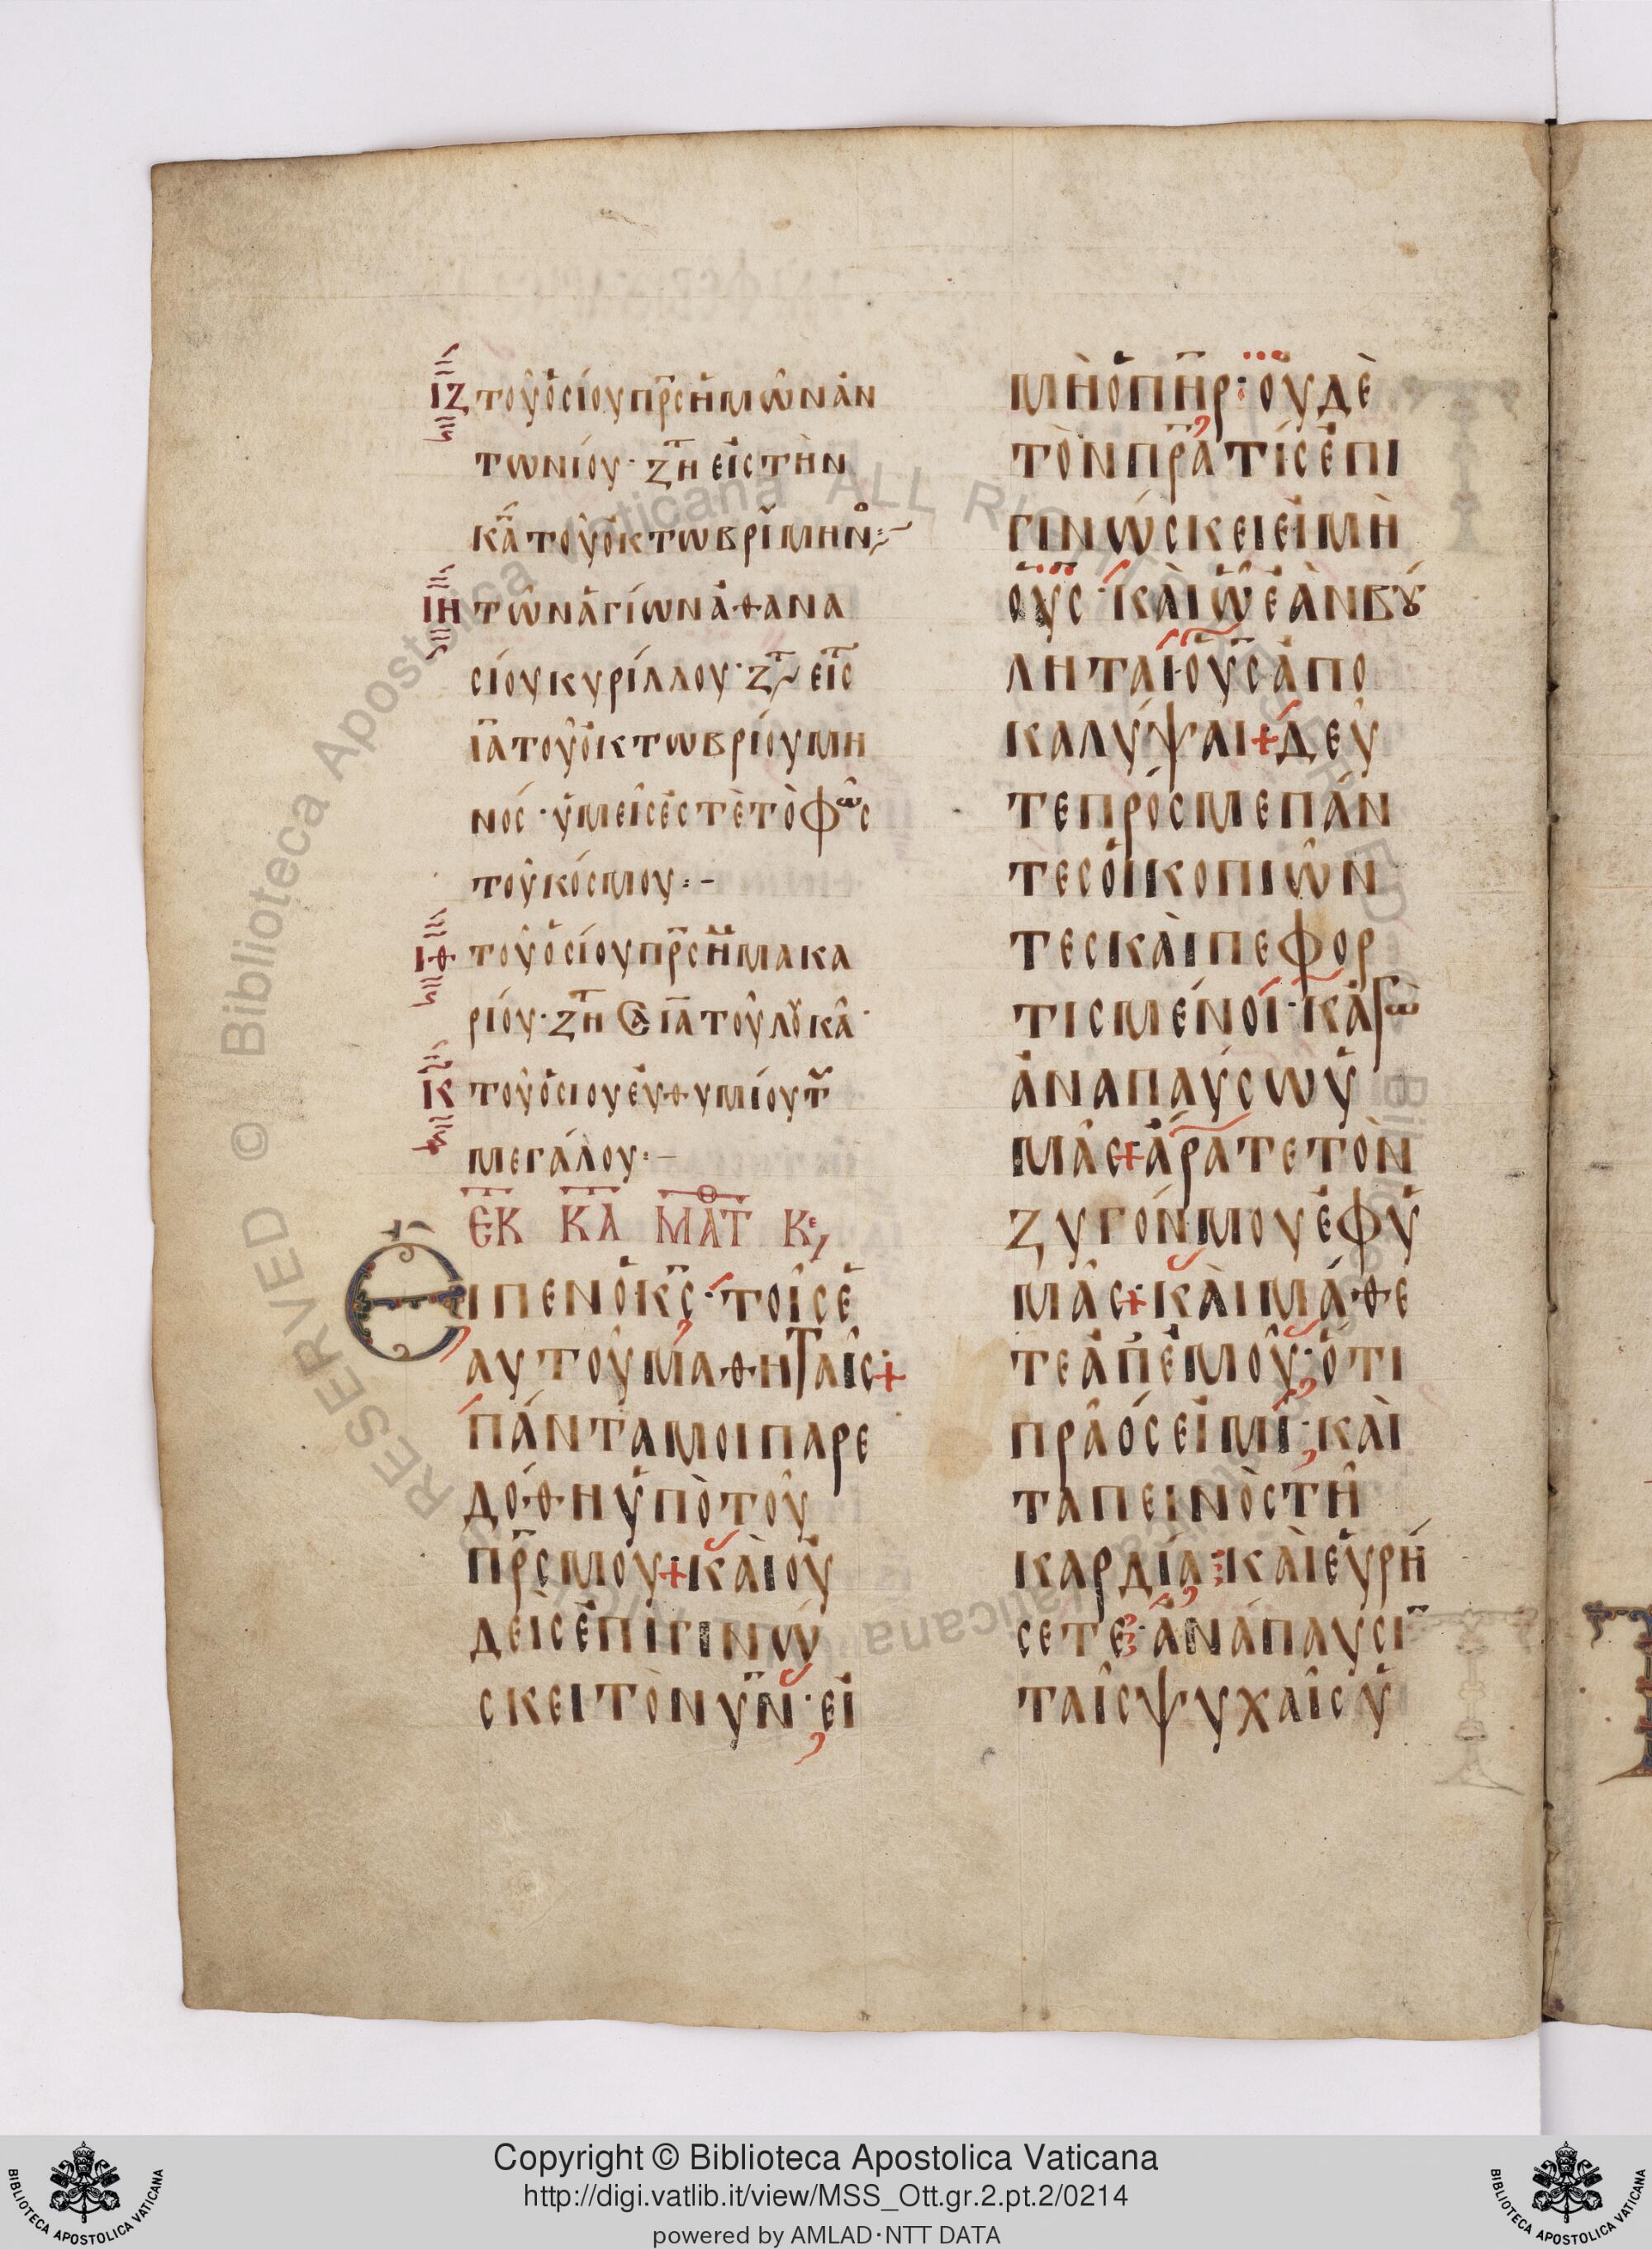 ΙΖ ΤΟΥ͂ὉΣΊΟΥΠΡ̅ΣἩΜΩ͂ΝἈΝ
ΤΩΝΊΟΥ· ΖΤΗ ΕἸΣΤῊΝ
ΚΑ̅ΤΟΥ͂ὈΚΤΩΒΡΊΜΗΝΟ
ΙΗ ΤΩ͂ΝἉΓΊΩΝἈΘΑΝΑ
ΣΊΟΥΚΥΡΊΛΛΟΥ· ΖΤ ΕἸΣ
ΙΑ̅ΤΟΥ͂ὈΚΤΩΒΡΊΟΥΜΗ
ΝΌΣ· ὙΜΕΙ͂ΣἘΣΤῈΤῸΦΩ͂Σ
ΤΟΥ͂ΚΌΣΜΟΥ:-
ΙΘ ΤΟΥ͂ὉΣΊΟΥΠΡ̅ΣἩΜΑΚΑ
ΡΊΟΥ· ΖΤΗ ΣΑ ΙΑ̅ΤΟΥ͂ΛΟΥΚΑ͂
Κ ΤΟΥ͂ὉΣΙΟΥΕΥ̓ΘΥΜΊΟΥΤ
ΜΕΓΆΛΟΥ:-
ΕΚ ΚΑ ΜΑΤΘ Κ;
ΕἾΠΕΝὉΚ̅Σ· ΤΟΙ͂ΣἙ
ΑΥΤΟΥ͂ΜΑΘΗΤΑΙ͂Σ+
ΠΆΝΤΑΜΟΙΠΑΡΕ
ΔΌΘΗὙΠῸΤΟΥ͂
ΠΡ̅ΣΜΟΥ+ΚᾺΙΟΥ̓
ΔΕῚΣἘΠΙΓΙΝΏ
ΣΚΕΙΤῸΝΥ̅Ν· ΕἸ
ΜῊὉΠ̅ΗΡ: ΟΥ̓ΔῈ
ΤῸΝΠΡ̅ΑΤΊΣἘΠΙ
ΓΙΝΏΣΚΕΙΕἸΜῊ
ὉΥ̅Σ· ΚᾺΙΩ͂ἘᾺΝΒΟΎ
ΛΗΤΑΙ·ὉΥ̅ΣἈΠΟ
ΚΑΛΎΨΑΙ+ΔΕΥ͂
ΤΕΠΡΌΣΜΕΠΆΝ
ΤΕΣὉΙΚΟΠΙΩ͂Ν
ΤΕΣΚᾺΙΠΕΦΟΡ
ΤΙΣΜΈΝΟΙ· ΚἈΓῺ
ἈΝΑΠΑΎΣΩὙ
ΜΑ͂Σ+ἌΡΑΤΕΤῸΝ
ΖΥΓΌΝΜΟΥἘΦὙ
ΜΑ͂Σ+ΚᾺΙΜΆΘΕ
ΤΕἈΠ̓ἘΜΟΥ͂· ὍΤΙ
ΠΡΑ͂ΌΣΕἸΜΊ· ΚᾺΙ
ΤΑΠΕΙΝῸΣΤΗ͂
ΚΑΡΔΊΑ: ΚᾺΙΕὙΡΉ
ΣΕΤΕ· ἈΝΆΠΑΥΣΙ̅
ΤΑΙ͂ΣΨΥΧΑΙ͂ΣὙ
© Biblioteca Apostolica Vaticana ALL RIGHTS RESERVED
Copyright © Biblioteca Apostolica Vaticana
http://digi.vatlib.it/view/MSS_Ott.gr.2.pt.2/0214
powered by AMLAD·NTT DATA
BIBLIOTECA APOSTOLICA VATICANA
BIBLIOTECA APOSTOLICA VATICANA